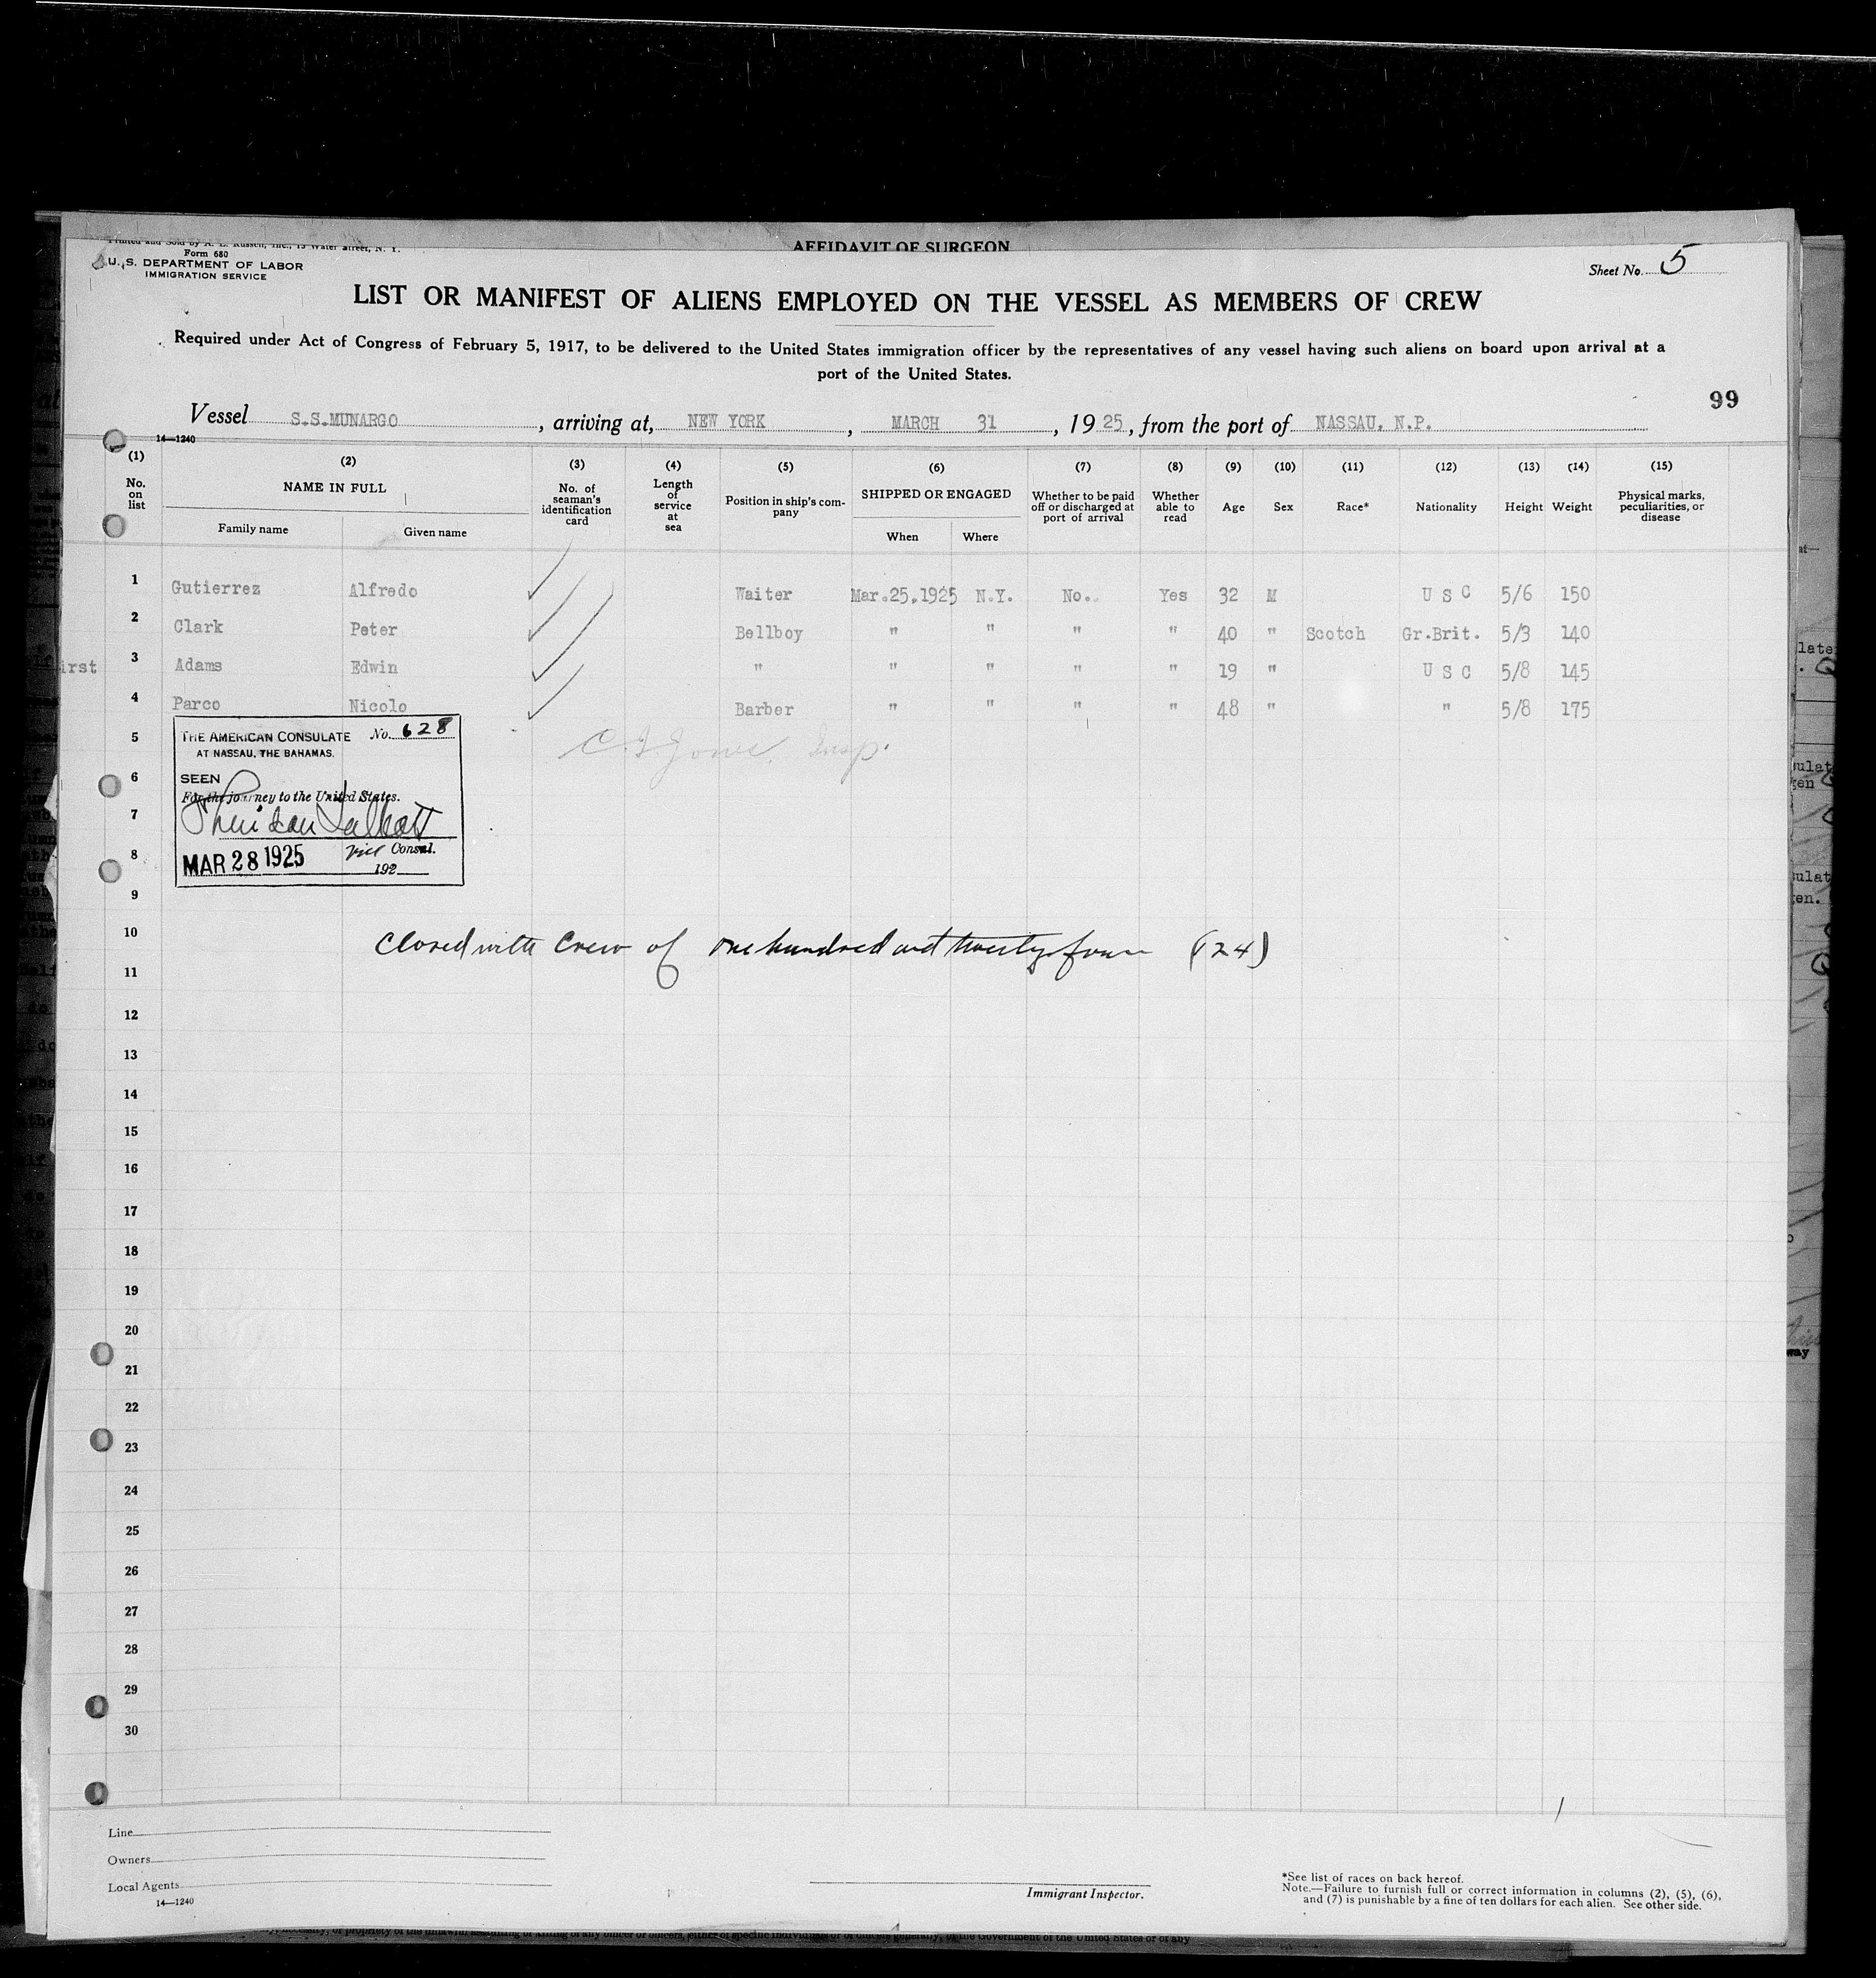 AFFIDAVIT OF SURGEON
Printed and Sold by A. E. Russell, Inc., 15 Water Street, N. Y.
Form 680
U. S. DEPARTMENT OF LABOR
IMMIGRATION SERVICE
Sheet No. 5
LIST OR MANIFEST OF ALIENS EMPLOYED ON THE VESSEL AS MEMBERS OF CREW
Required under Act of Congress of February 5, 1917, to be delivered to the United States immigration officer by the representatives of any vessel having such aliens on board upon arrival at a
port of the United States.
99
Vessel S.S.MUNARGO, arriving at, NEW YORK, MARCH 31, 1925, from the port of NASSAU, N.P.
14—1240
(1) (2) (3) (4) (5) (6) (7) (8) (9) (10) (11) (12) (13) (14) (15)
No. on list NAME IN FULL No. of seaman's identification card Length of service at sea Position in ship's company SHIPPED OR ENGAGED Whether to be paid off or discharged at port of arrival Whether able to read Age Sex Race* Nationality Height Weight Physical marks, peculiarities, or disease
Family name Given name When Where
1 Gutierrez Alfredo Waiter Mar.25,1925 N.Y. No. Yes 32 M U S C 5/6 150
2 Clark Peter Bellboy " " " " 40 " Scotch Gr.Brit. 5/3 140
3 Adams Edwin " " " " " 19 " U S C 5/8 145
4 Parco Nicolo Barber " " " " 48 " " 5/8 175
5
THE AMERICAN CONSULATE No. 628
AT NASSAU, THE BAHAMAS.
6
SEEN
For the journey to the United States.
7
8
Vice Consul.
MAR 28 1925 192
9
10
Closed with Crew of one hundred and twenty four (124)
11
12
13
14
15
16
17
18
19
20
21
22
23
24
25
26
27
28
29
30
Line
Owners
Local Agents
14—1240
Immigrant Inspector.
*See list of races on back hereof.
Note.—Failure to furnish full or correct information in columns (2), (5), (6),
and (7) is punishable by a fine of ten dollars for each alien. See other side.